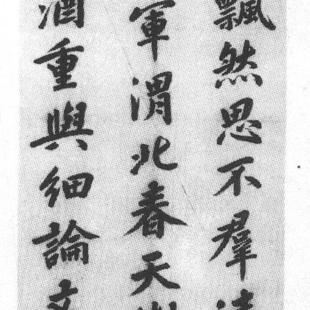 飄然思不羣清
軍渭北春天樹
酒重與細論文